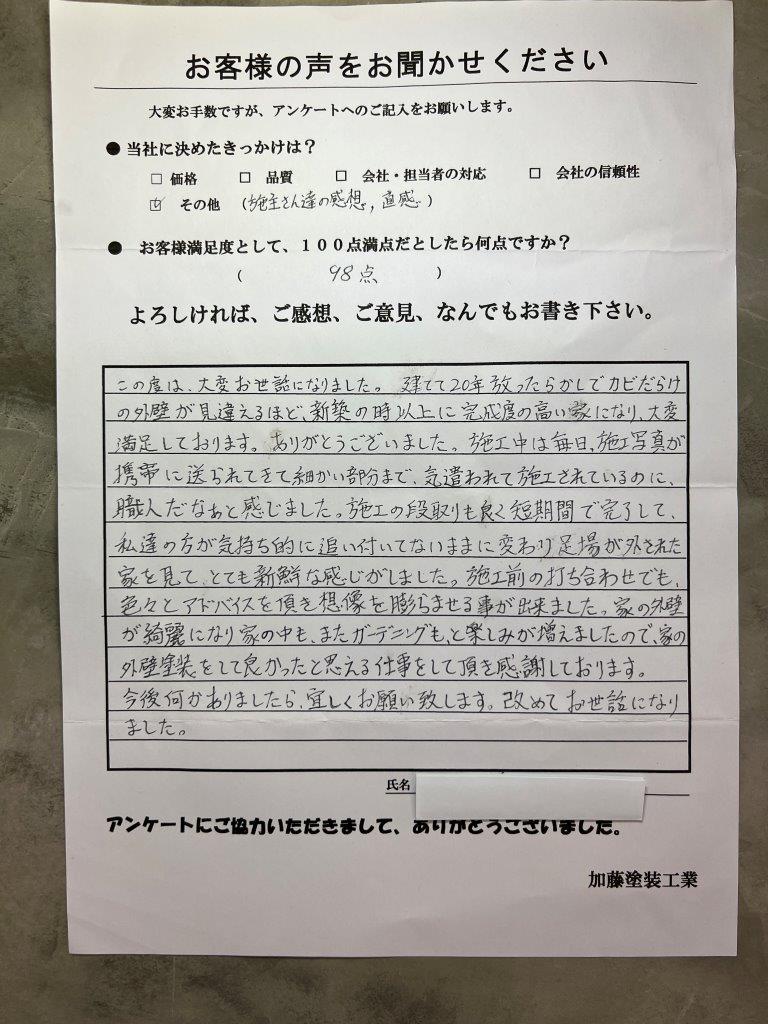 お客様の声をお聞かせください
大変お手数ですが、アンケートへのご記入をお願いします。
●当社に決めたきっかけは？
□ 価格 □ 品質 □ 会社・担当者の対応 □ 会社の信頼性
☑ その他 (施主さん達の感想，直感)
● お客様満足度として、１００点満点だとしたら何点ですか？
( 98点 )
よろしければ、ご感想、ご意見、なんでもお書き下さい。
この度は、大変お世話になりました。 建てて20年放ったらかしでカビだらけ
の外壁が見違えるほど、新築の時以上に完成度の高い家になり、大変
満足しております。ありがとうございました。施工中は毎日、施工写真が
携帯に送られてきて細かい部分まで、気遣われて施工されているのに、
職人だなぁと感じました。施工の段取りも良く短期間で完了して、
私達の方が気持ち的に追い付いてないままに変わり足場が外された
家を見て、とても新鮮な感じがしました。施工前の打ち合わせでも、
色々とアドバイスを頂き想像を膨らませる事が出来ました。家の外壁
が綺麗になり家の中も、またガーデニングも、と楽しみが増えましたので、家の
外壁塗装をして良かったと思える仕事をして頂き感謝しております。
今後何かありましたら、宜しくお願い致します。改めてお世話になり
ました。
氏名
アンケートにご協力いただきまして、ありがとうございました。
加藤塗装工業